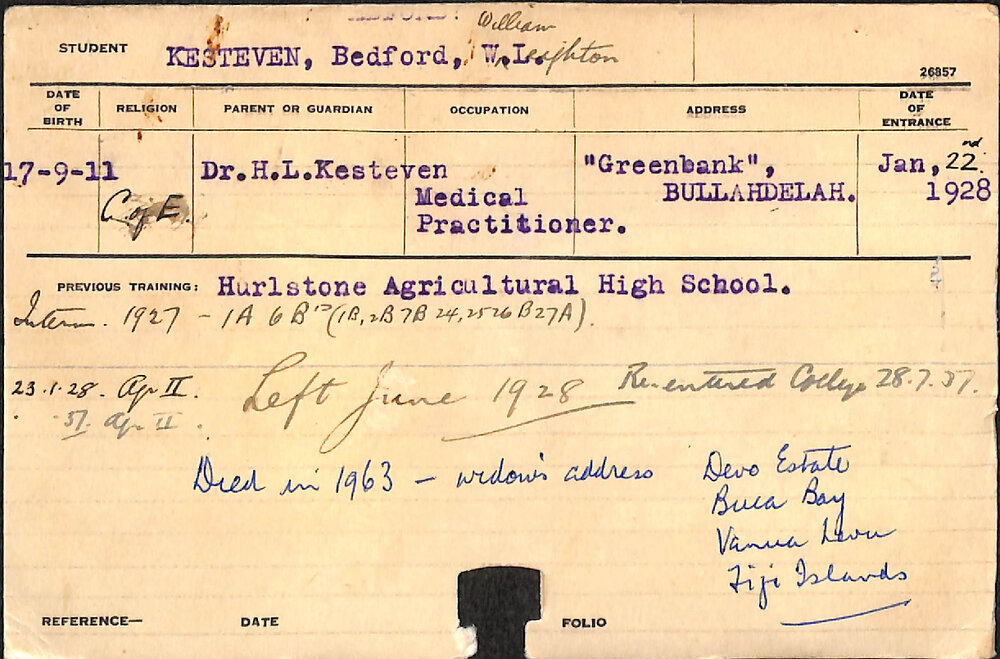 William
STUDENT KESTEVEN, Bedford, W.L. Leighton
26857
DATE OF BIRTH RELIGION PARENT OR GUARDIAN OCCUPATION ADDRESS DATE OF ENTRANCE
17-9-11 Dr.H.L.Kesteven "Greenbank", Jan, 22nd.
C of E. Medical BULLAHDELAH. 1928
Practitioner.
PREVIOUS TRAINING: Hurlstone Agricultural High School.
Interm. 1927 - 1A 6B's (1B, 2B 7B 24, 25 26 B 27A).
23.1.28. Ag II. Left June 1928 Re-entered College 28.7.37.
37. Ag II.
Died in 1963 - widow's address Devo Estate
Buca Bay
Vanua Levu
Fiji Islands
REFERENCE— DATE FOLIO